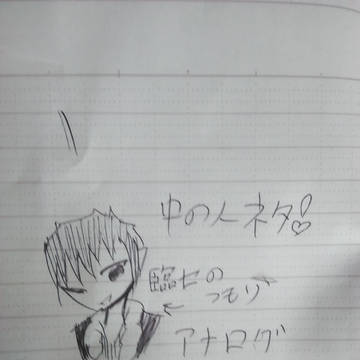 中の人ネタ!
臨也の
つもり
←
アナログ